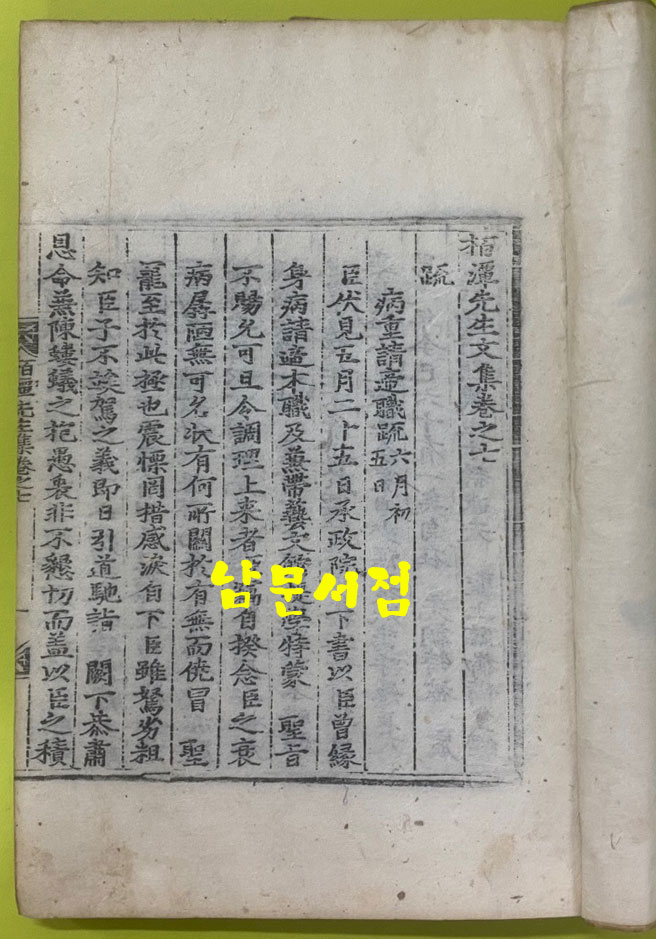 栢潭先生文集卷之七
疏
病重請遞職疏六月初五日
臣伏見五月二十五日承政院 下書以臣曾緣
身病請遞本職及兼帶藝文館 學特蒙 聖旨
不賜允可且令調理上來者 竊自揆念臣之衰
病孱陋無可名狀有何所關於有無而僥冒 聖
寵至於此極也震慄罔措感淚自下臣雖駑劣粗
知臣子不俟駕之義即日引道馳詣 闕下恭肅
恩命兼陳螻蟻之抱愚衷非不懇切而盖以臣之積
栢潭先生集卷之七
남문서점